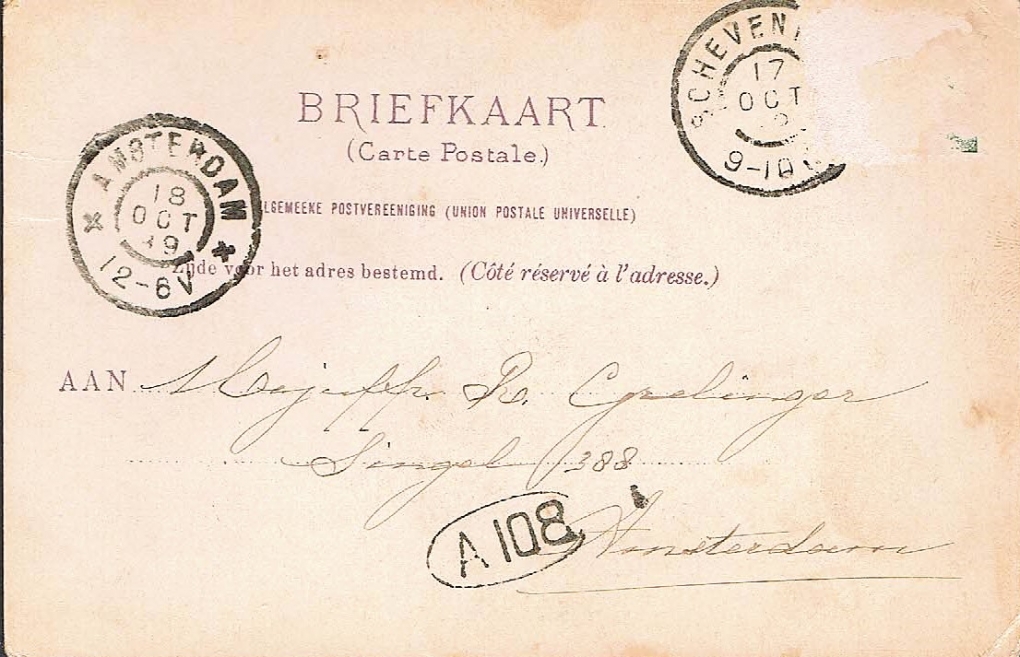 BRIEFKAART
(Carte Postale.)
SCHEVENI
17
OCT
9-10
AMSTERDAM
18
OCT
99
12-6V
LGEMEENE POSTVEREENIGING (UNION POSTALE UNIVERSELLE)
Zijde voor het adres bestemd. (Côté réservé à l'adresse.)
AAN Mejuffr. R. Cyrelinger
Singel 388
A 108
Amsterdam